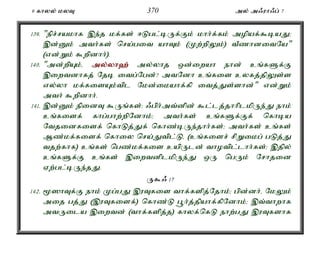 9 காலல் மலவு 370 அல் அஃராஃப் 7
139. "நிச்சயமாக இந்த மக்கள் ஈடுபட்டிருக்கும் மார்க்கம் அழியக்கூடியது;
இன்னும் அவர்கள் செய்பவை யாவும் (முற்றிலும்) வீணானவையே"
(என்றும் கூறினார்).
140. "அன்றியும், அல்லாஹ் அல்லாத ஒன்றையா நான் உங்களுக்கு
இறைவனாகத் தேடி வைப்பேன்? அவனோ உங்களை உலகத்திலுள்ள
எல்லா மக்களையும்விட மேன்மையாக்கி வைத்துள்ளான்" என்றும்
அவர் கூறினார்.
141. இன்னும் நினைவு கூருங்கள்: ஃபிர்அவ்னின் கூட்டத்தாரிடமிருந்து நாம்
உங்களைக் காப்பாற்றினோம்; அவர்கள் உங்களுக்குக் கொடிய
வேதனைகளைக் கொடுத்துக் கொண்டிருந்தார்கள்; அவர்கள் உங்கள்
ஆண்மக்களைக் கொலை செய்துவிட்டு, (உங்களைச் சிறுமைப் படுத்து
வதற்காக) உங்கள் பெண்மக்களை உயிருடன் வாழவிட்டார்கள்; இதில்
உங்களுக்கு உங்கள் இறைவனிடமிருந்து ஒரு பெரும் சோதனை
ஏற்பட்டிருந்தது.
ருகூஃ 17
142. மூஸாவுக்கு நாம் முப்பது இரவுகளை வாக்களித்தோம்; பின்னர், மேலும்
அதை பத்து (இரவுகளைக்) கொண்டு பூர்த்தியாக்கினோம்; இவ்வாறாக
அவருடைய இறைவன் (வாக்களித்த) காலக்கெடு நாற்பது இரவுகளாக